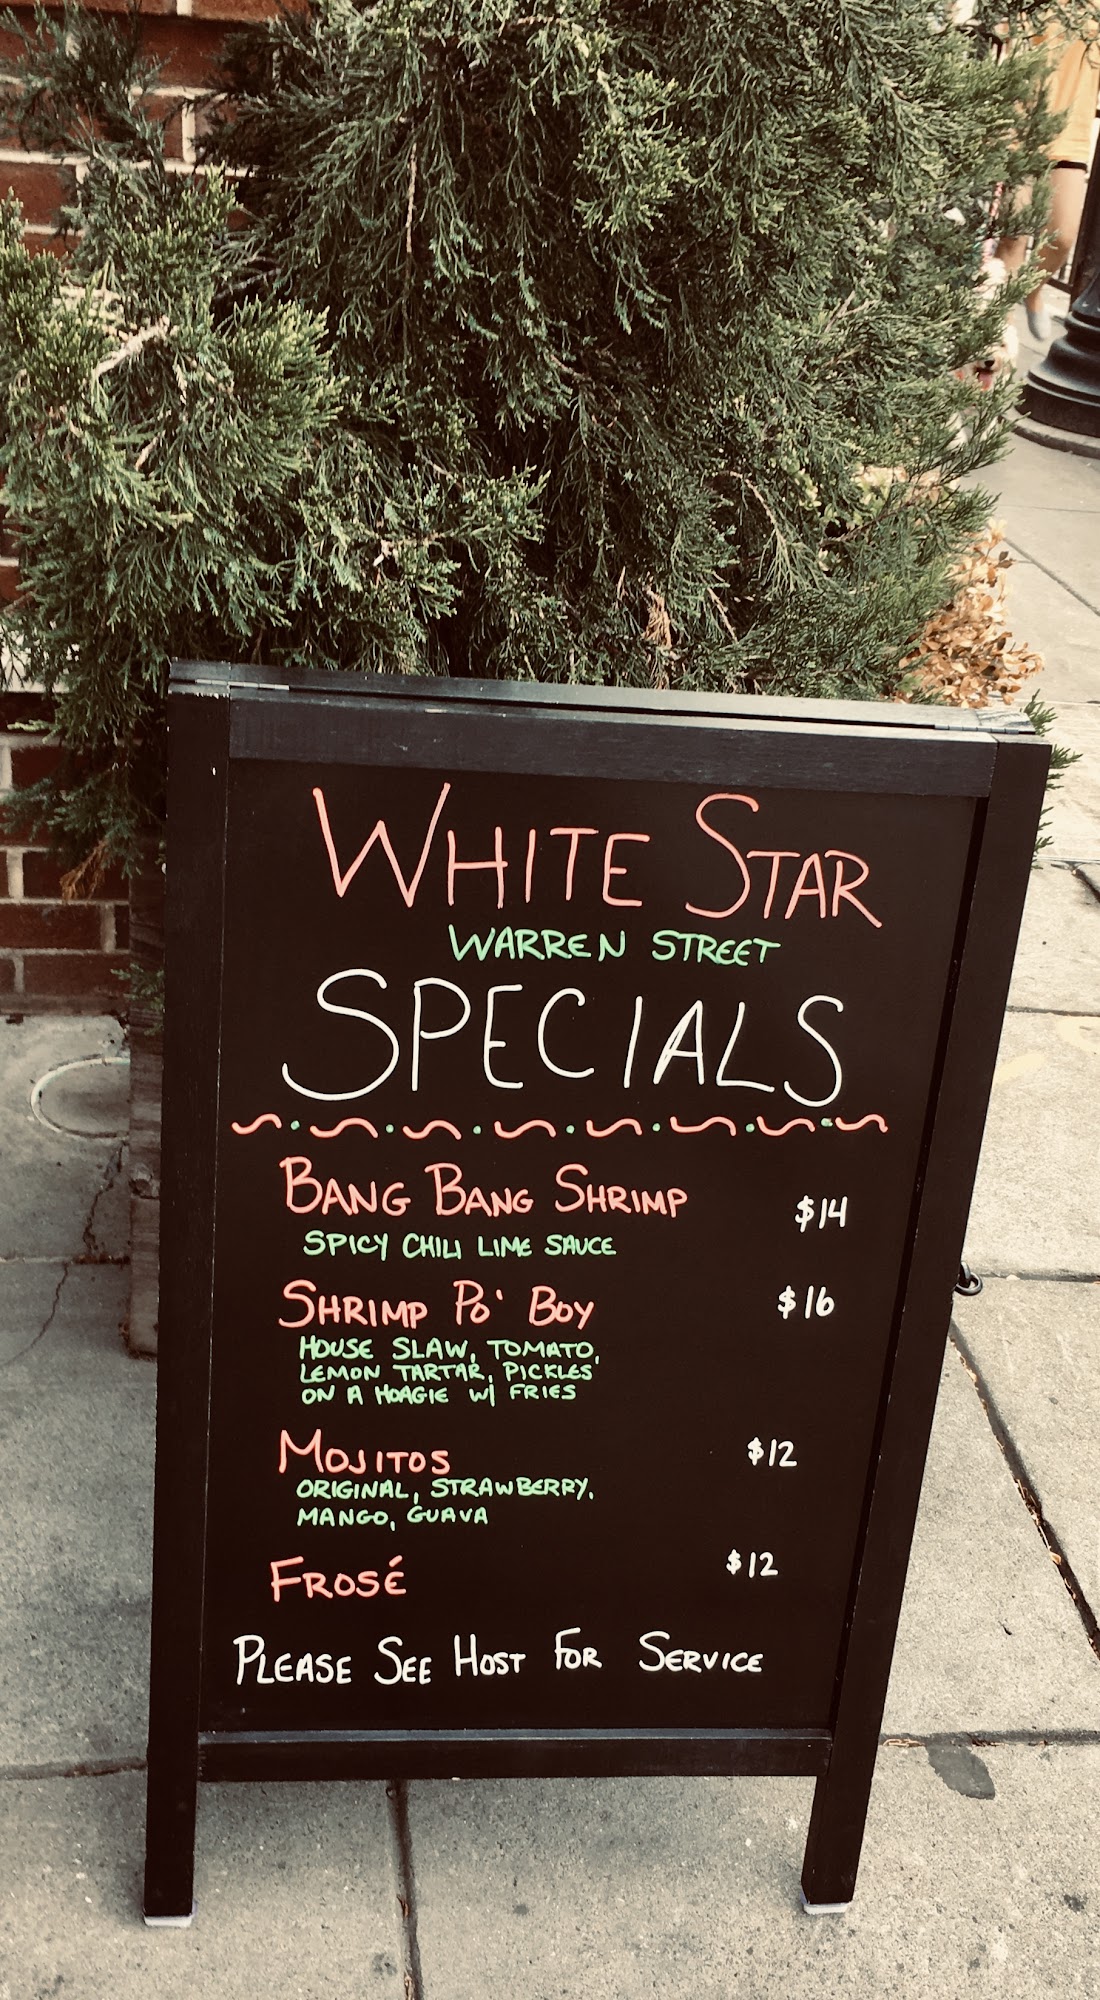 WHITE STAR
WARREN STREET
SPECIALS
BANG BANG SHRIMP $14
SPICY CHILI LIME SAUCE
SHRIMP PO' BOY $16
HOUSE SLAW, TOMATO,
LEMON TARTAR, PICKLES
ON A HOAGIE W/ FRIES
MOJITOS $12
ORIGINAL, STRAWBERRY,
MANGO, GUAVA
FROSÉ $12
PLEASE SEE HOST FOR SERVICE